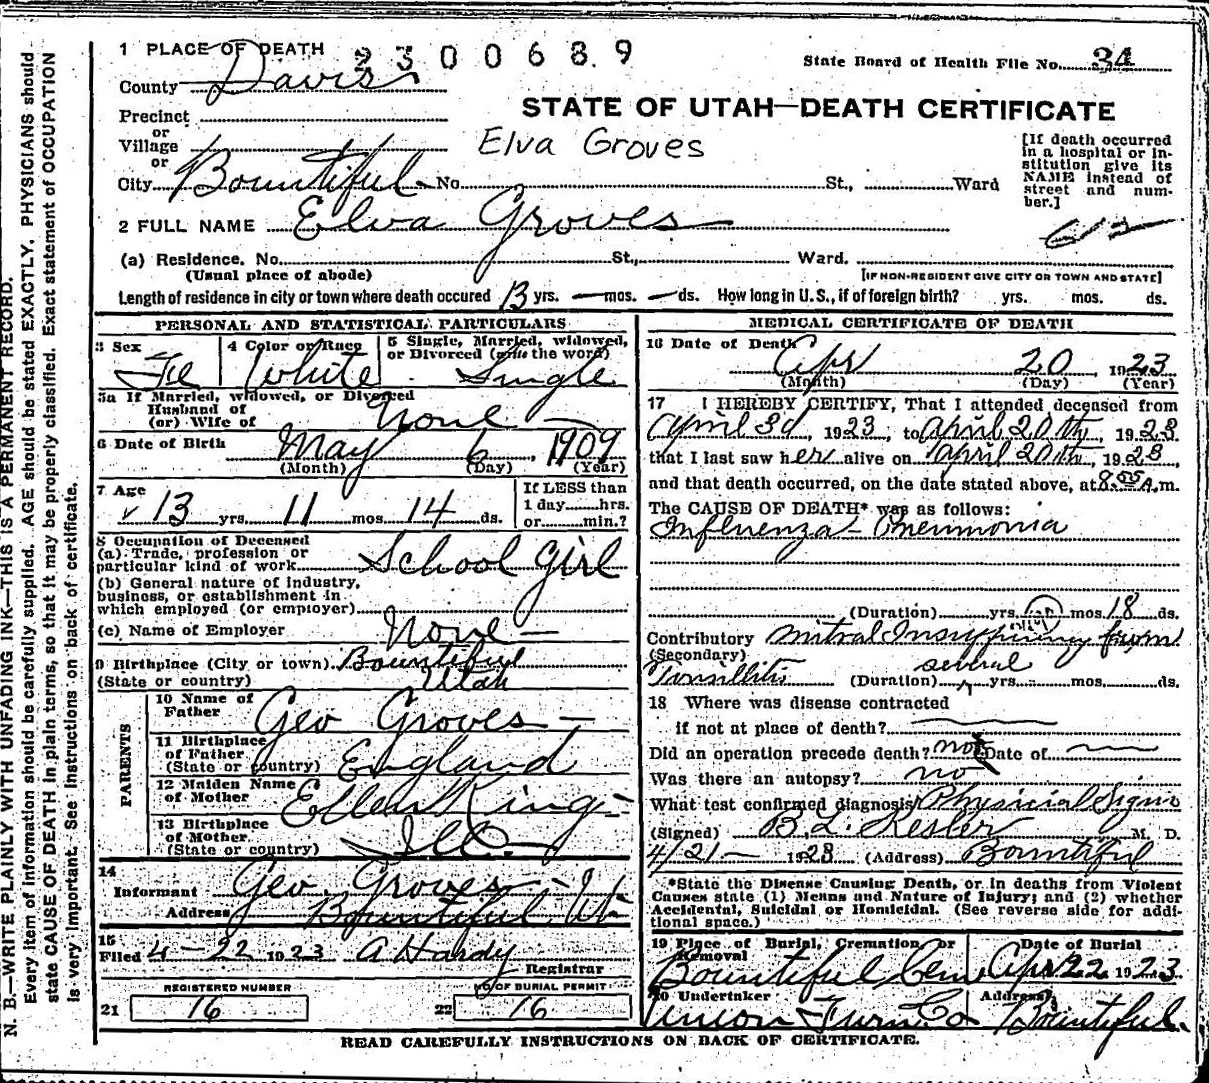 N. B.—WRITE PLAINLY WITH UNFADING INK—THIS IS A PERMANENT RECORD.
Every item of information should be carefully supplied. AGE should be stated EXACTLY. PHYSICIANS should
state CAUSE OF DEATH in plain terms, so that it may be properly classified. Exact statement of OCCUPATION
is very important. See instructions on back of certificate.
1 PLACE OF DEATH 2300689
State Board of Health File No. 34
County Davis
STATE OF UTAH—DEATH CERTIFICATE
Precinct
or
Village
Elva Groves
or
City Bountiful No. St., Ward
[If death occurred
in a hospital or in-
stitution give its
NAME instead of
street and num-
ber.]
2 FULL NAME Elva Groves
(a) Residence. No. St., Ward.
(Usual place of abode) [IF NON-RESIDENT GIVE CITY OR TOWN AND STATE]
Length of residence in city or town where death occured 13 yrs. — mos. — ds. How long in U. S., if of foreign birth? yrs. mos. ds.
PERSONAL AND STATISTICAL PARTICULARS
3 Sex 4 Color or Race 5 Single, Married, widowed,
or Divorced (write the word)
Fe White Single
5a If Married, widowed, or Divorced
Husband of
(or) Wife of None —
6 Date of Birth May 6 1909
(Month) (Day) (Year)
7 Age If LESS than
1 day hrs.
or min.?
13 yrs 11 mos 14 ds.
8 Occupation of Deceased
(a) Trade, profession or
particular kind of work School Girl
(b) General nature of industry,
business, or establishment in
which employed (or employer)
(c) Name of Employer None —
9 Birthplace (City or town) Bountiful
(State or country) Utah
PARENTS
10 Name of
Father Geo Groves —
11 Birthplace
of Father
(State or country) England
12 Maiden Name
of Mother Ellen King —
13 Birthplace
of Mother
(State or country) Ill. —
14
Informant Geo. Groves
Address Bountiful, Ut
15
Filed 4-22 1923 A Hardy
Registrar
REGISTERED NUMBER NO OF BURIAL PERMIT
21 16 22 16
MEDICAL CERTIFICATE OF DEATH
16 Date of Death Apr 20, 1923
(Month) (Day) (Year)
17 I HEREBY CERTIFY, That I attended deceased from
April 3d, 1923, to April 20th, 1923
that I last saw her alive on April 20th, 1923,
and that death occurred, on the date stated above, at 8.55 A.m.
The CAUSE OF DEATH* was as follows:
Influenza - Pneumonia
(Duration) yrs. mos. 18 ds.
Contributory Mitral Insufficiency from
(Secondary)
Tonsillitis (Duration) several yrs. mos. ds.
18 Where was disease contracted
if not at place of death?
Did an operation precede death? not Date of
Was there an autopsy? no
What test confirmed diagnosis Physicial Signs
(Signed) B. L. Kesler M. D.
4/21 — 1923 (Address) Bountiful
*State the Disease Causing Death, or in deaths from Violent
Causes state (1) Means and Nature of Injury; and (2) whether
Accidental, Suicidal or Homicidal. (See reverse side for addi-
tional space.)
19 Place of Burial, Cremation or
Removal Date of Burial
Bountiful Cem. Apr 22 1923
20 Undertaker Address
Union Furn. Co Bountiful.
READ CAREFULLY INSTRUCTIONS ON BACK OF CERTIFICATE.